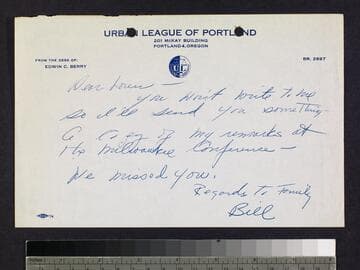 URBAN LEAGUE OF PORTLAND
201 McKAY BUILDING
PORTLAND 4, OREGON
FROM THE DESK OF:
EDWIN C. BERRY
BR. 2887
UL
Dear —
you won't write to me
so I'll send you something
A copy of my remarks at
the Milwaukee Conference —
We missed you.
Regards to Family
Bill